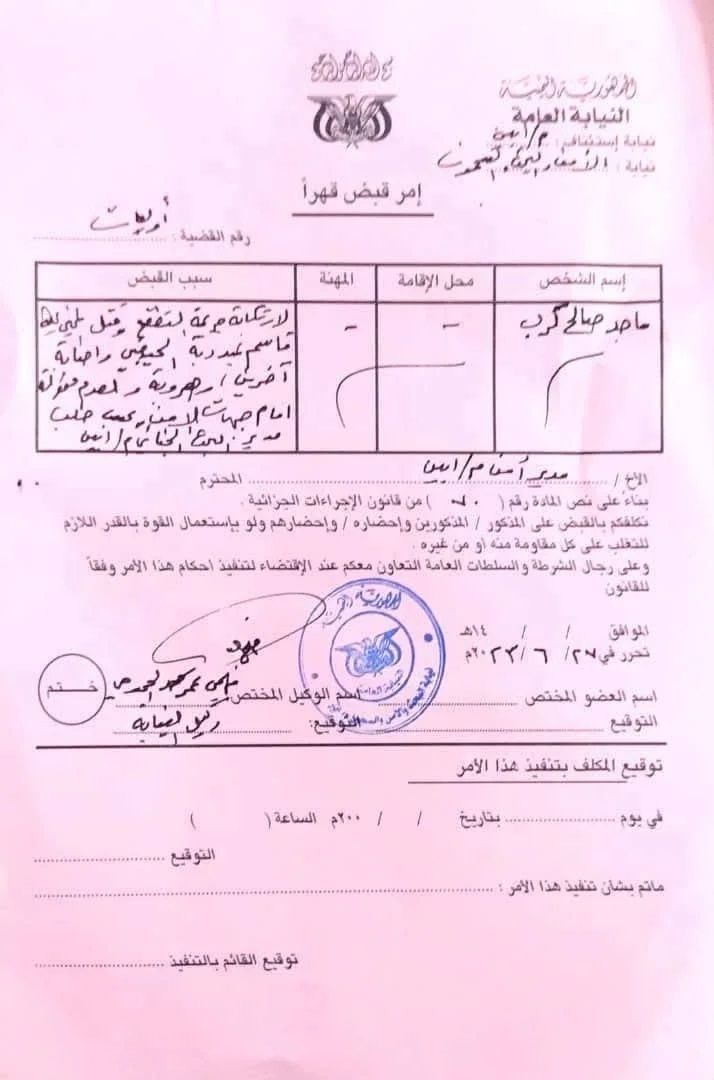 الجمهورية اليمنية
النيابة العامة
نيابة إستئناف : م/ابين
نيابة :
أمر قبض قهراً
رقم القضية : أوليات
إسم الشخص محل الإقامة المهنة سبب القبض
ماجد صالح كرب - -
لارتكابه جريمة التقطع وقتل
قاسم بمديرية واصابة
آخرين
امام جهات الامن طلب
مدير البحث الجنائي م/ابين
الأخ / مدير أمن م/ابين المحترم
بناءً على نص المادة رقم ( ٧٠ ) من قانون الإجراءات الجزائية .
نكلفكم بالقبض على المذكور / المذكورين وإحضاره / وإحضارهم ولو بإستعمال القوة بالقدر اللازم
للتغلب على كل مقاومة منه أو من غيره .
وعلى رجال الشرطة والسلطات العامة التعاون معكم عند الإقتضاء لتنفيذ أحكام هذا الأمر وفقاً
للقانون
الموافق / / ١٤هـ
تحرر في ٢٧/ ٦ /٢٠٢٣م
الجمهورية اليمنية
النيابة العامة
اسم العضو المختص اسم الوكيل المختص
ختم
التوقيع التوقيع: وكيل النيابة
توقيع المكلف بتنفيذ هذا الأمر
في يوم بتاريخ / / ٢٠٠م الساعة ( )
التوقيع
ماتم بشأن تنفيذ هذا الأمر :
توقيع القائم بالتنفيذ